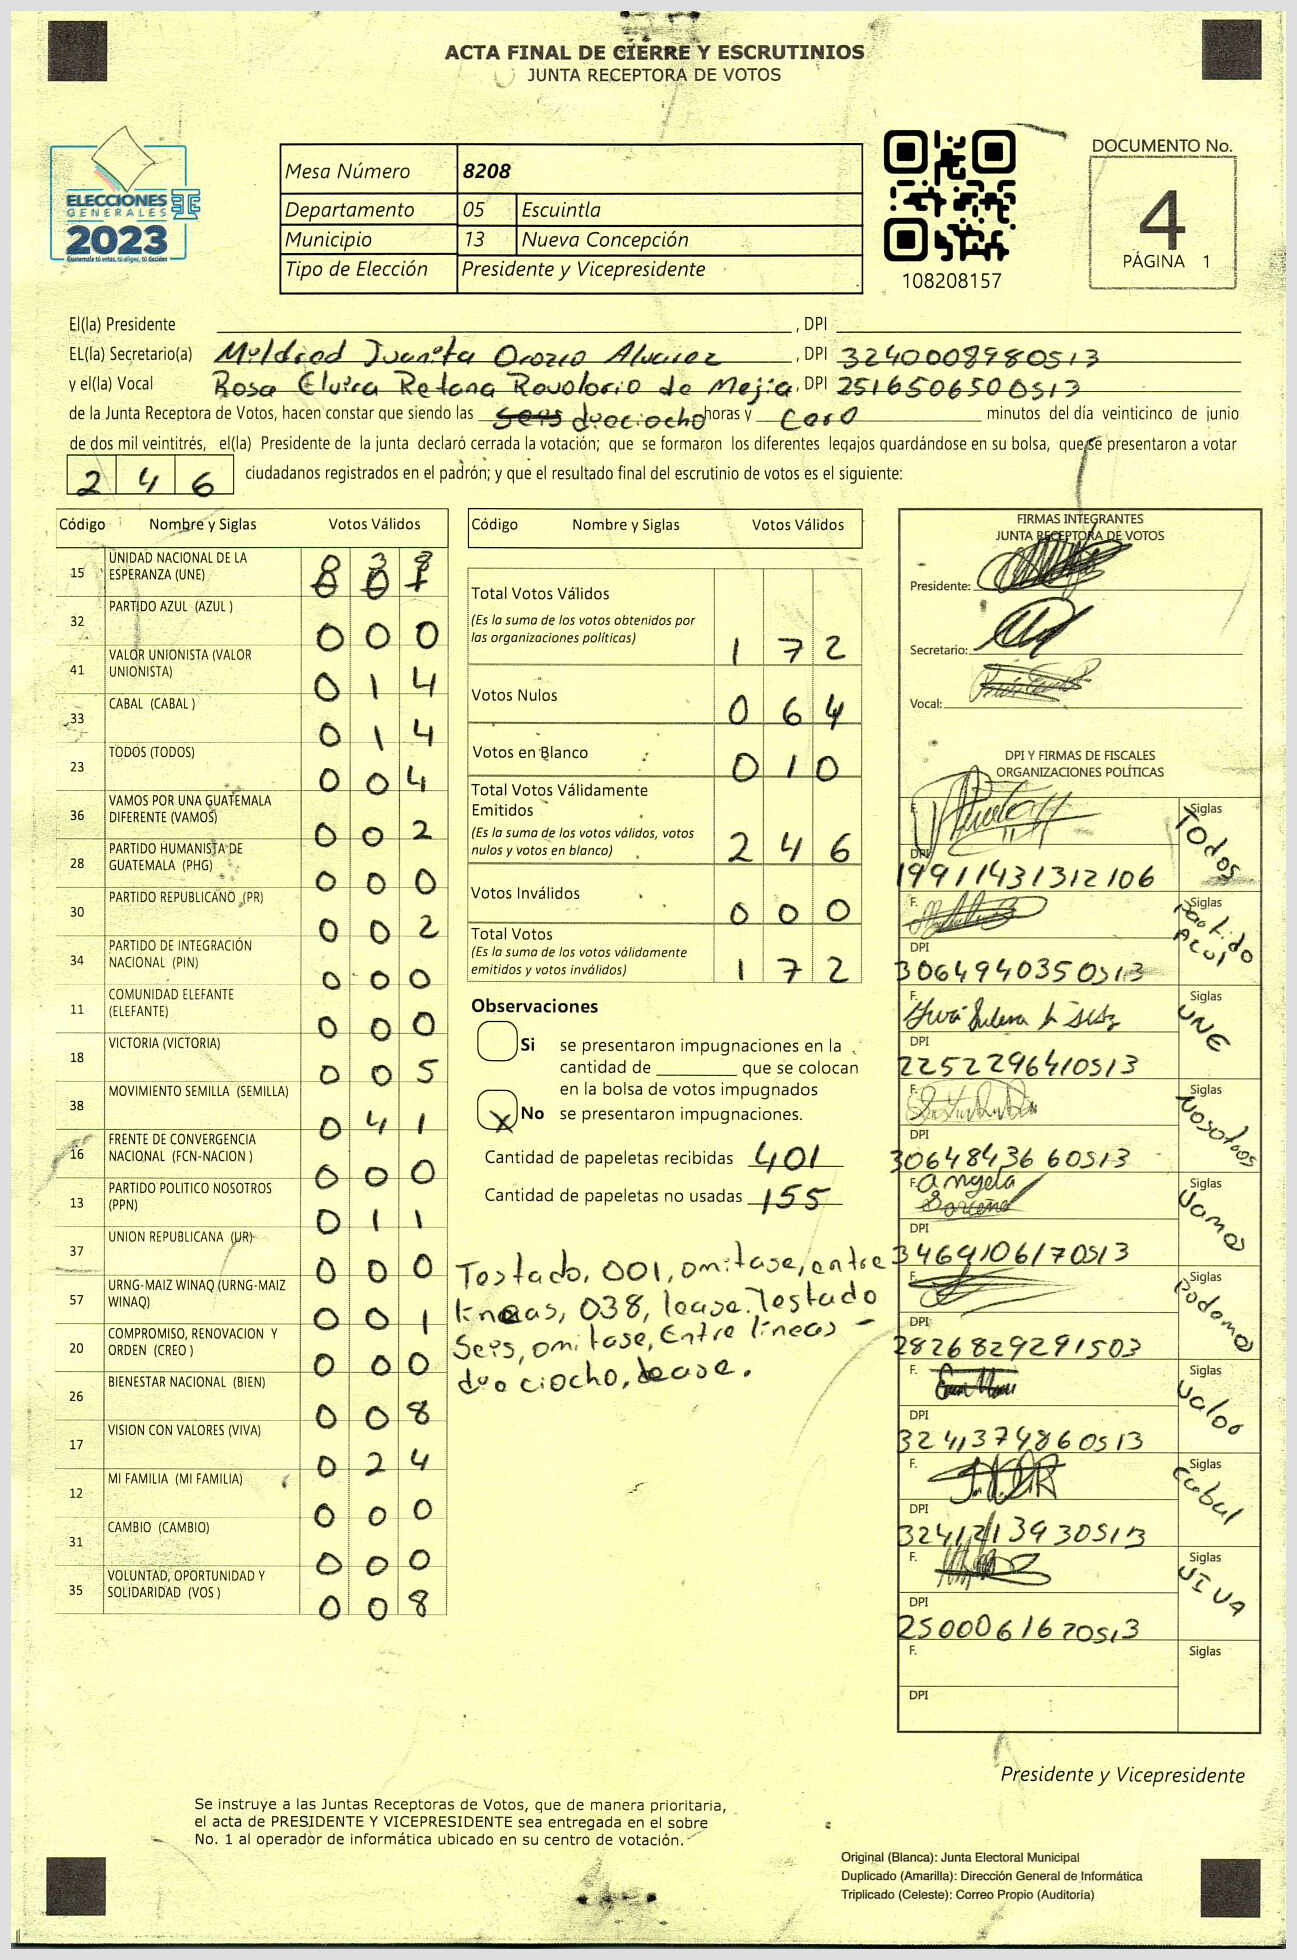 ACTA FINAL DE CIERRE Y ESCRUTINIOS
JUNTA RECEPTORA DE VOTOS
ELECCIONES
GENERALES
2023
Guatemala tú votas, tú eliges, tú decides
Mesa Número 8208
Departamento 05 Escuintla
Municipio 13 Nueva Concepción
Tipo de Elección Presidente y Vicepresidente
108208157
DOCUMENTO No.
4
PÁGINA 1
El(la) Presidente , DPI
EL(la) Secretario(a) Mildred Juanita Orozco Alvarez , DPI 3240008980513
y el(la) Vocal Rosa Elvira Retana Revolorio de Mejia, DPI 2516506500513
de la Junta Receptora de Votos, hacen constar que siendo las seis dieciocho horas y cero minutos del día veinticinco de junio
de dos mil veintitrés, el(la) Presidente de la junta declaró cerrada la votación; que se formaron los diferentes legajos quardándose en su bolsa, que se presentaron a votar
2 4 6 ciudadanos registrados en el padrón; y que el resultado final del escrutinio de votos es el siguiente:
Código Nombre y Siglas Votos Válidos
15 UNIDAD NACIONAL DE LA ESPERANZA (UNE) 0 3 8
0 0 1
32 PARTIDO AZUL (AZUL ) 0 0 0
41 VALOR UNIONISTA (VALOR UNIONISTA) 0 1 4
33 CABAL (CABAL ) 0 1 4
23 TODOS (TODOS) 0 0 4
36 VAMOS POR UNA GUATEMALA DIFERENTE (VAMOS) 0 0 2
28 PARTIDO HUMANISTA DE GUATEMALA (PHG) 0 0 0
30 PARTIDO REPUBLICANO (PR) 0 0 2
34 PARTIDO DE INTEGRACIÓN NACIONAL (PIN) 0 0 0
11 COMUNIDAD ELEFANTE (ELEFANTE) 0 0 0
18 VICTORIA (VICTORIA) 0 0 5
38 MOVIMIENTO SEMILLA (SEMILLA) 0 4 1
16 FRENTE DE CONVERGENCIA NACIONAL (FCN-NACION ) 0 0 0
13 PARTIDO POLITICO NOSOTROS (PPN) 0 1 1
37 UNION REPUBLICANA (UR) 0 0 0
57 URNG-MAIZ WINAQ (URNG-MAIZ WINAQ) 0 0 1
20 COMPROMISO, RENOVACION Y ORDEN (CREO ) 0 0 0
26 BIENESTAR NACIONAL (BIEN) 0 0 8
17 VISION CON VALORES (VIVA) 0 2 4
12 MI FAMILIA (MI FAMILIA) 0 0 0
31 CAMBIO (CAMBIO) 0 0 0
35 VOLUNTAD, OPORTUNIDAD Y SOLIDARIDAD (VOS ) 0 0 8
Código Nombre y Siglas Votos Válidos
Total Votos Válidos
(Es la suma de los votos obtenidos por
las organizaciones políticas) 1 7 2
Votos Nulos 0 6 4
Votos en Blanco 0 1 0
Total Votos Válidamente
Emitidos
(Es la suma de los votos válidos, votos
nulos y votos en blanco) 2 4 6
Votos Inválidos 0 0 0
Total Votos
(Es la suma de los votos válidamente
emitidos y votos inválidos) 1 7 2
Observaciones
Si se presentaron impugnaciones en la
cantidad de ________ que se colocan
en la bolsa de votos impugnados
X No se presentaron impugnaciones.
Cantidad de papeletas recibidas 401
Cantidad de papeletas no usadas 155
Testado, 001, omitase, entre
lineas, 038, lease. Testado
Seis, omitase, Entre líneas -
dieciocho, lease.
FIRMAS INTEGRANTES
JUNTA RECEPTORA DE VOTOS
Presidente:
Secretario:
Vocal:
DPI Y FIRMAS DE FISCALES
ORGANIZACIONES POLÍTICAS
F. Siglas TOdos
DPI 19911431312106
F. Siglas Partido Azul
DPI 3064940350513
F. Siglas UNE
DPI 2252296410513
F. Siglas Nosotros
DPI 3064843660513
F. Angela Siglas Vamos
DPI 3469106170513
F. Siglas Podemos
DPI 2826829291503
F. Siglas Valor
DPI 3241374860513
F. Siglas Cabal
DPI 3241213930513
F. Siglas VIVA
DPI 2500061670513
F. Siglas
DPI
Presidente y Vicepresidente
Se instruye a las Juntas Receptoras de Votos, que de manera prioritaria,
el acta de PRESIDENTE Y VICEPRESIDENTE sea entregada en el sobre
No. 1 al operador de informática ubicado en su centro de votación.
Original (Blanca): Junta Electoral Municipal
Duplicado (Amarilla): Dirección General de Informática
Triplicado (Celeste): Correo Propio (Auditoria)